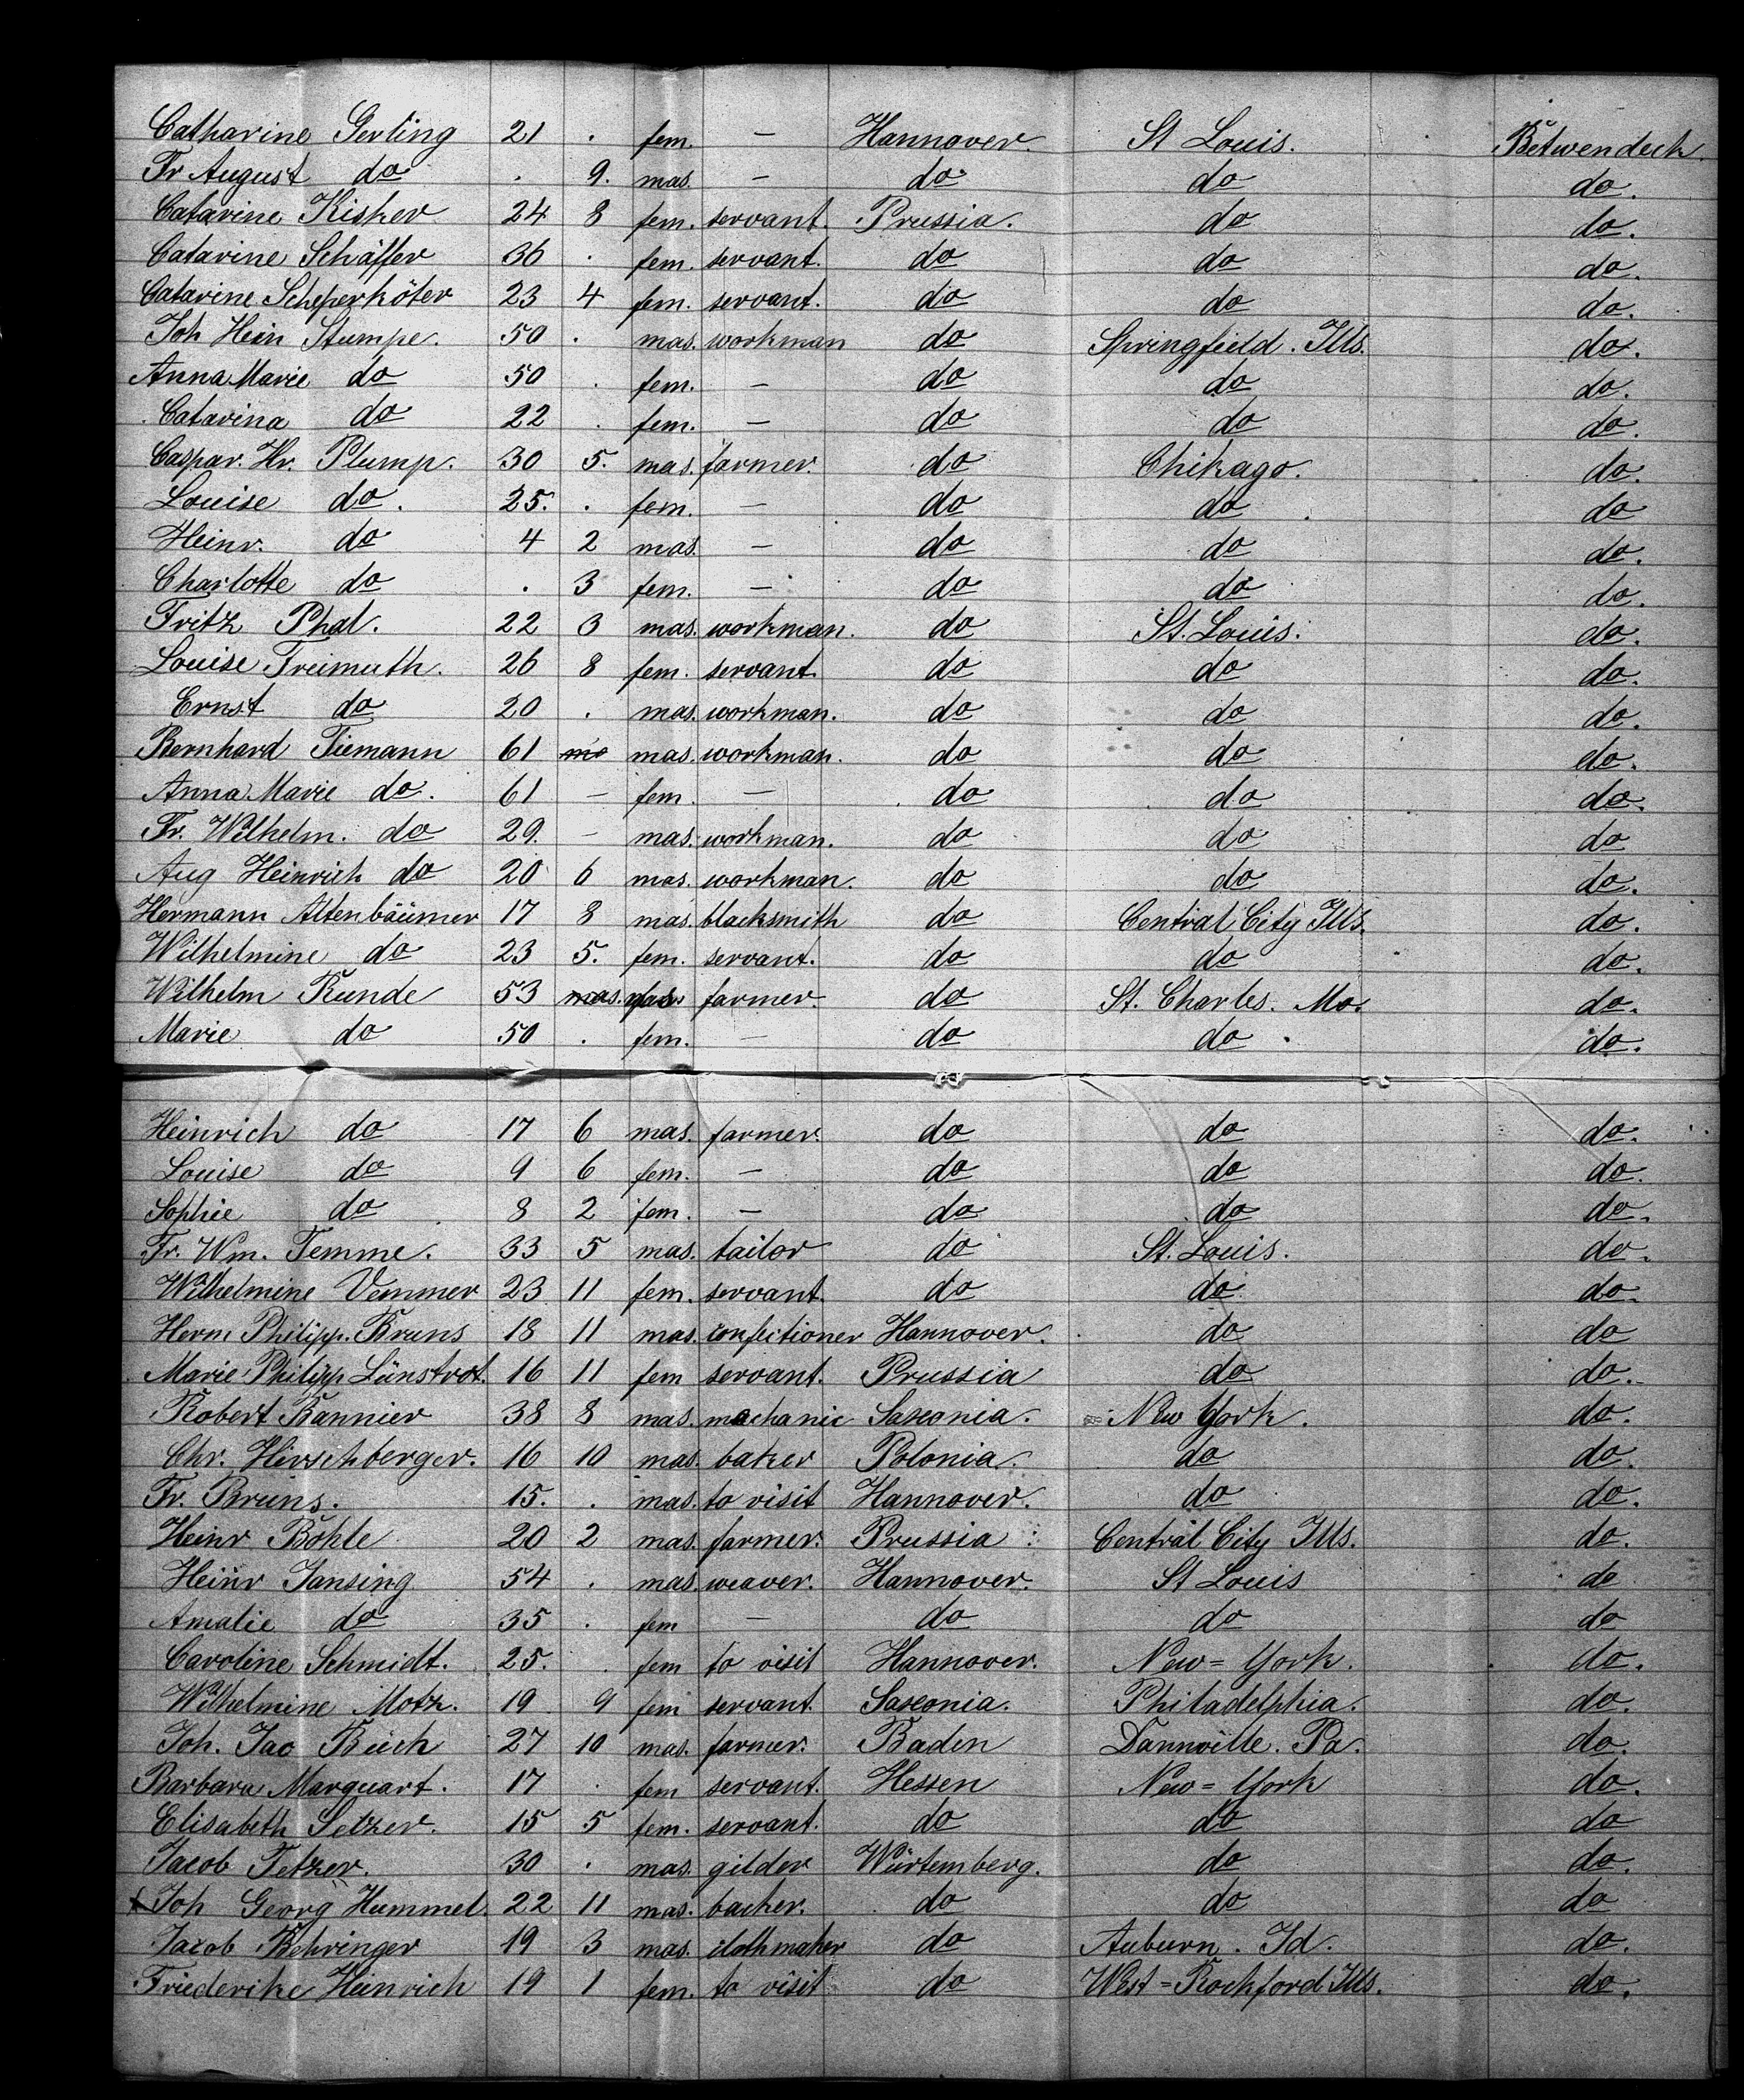 Catharine Gerling 21 . fem. — Hannover. St Louis. Betwendeck.
Fr August do . 9. mas. — do do do.
Catarine Kisker 24 8 fem. servant. Prussia. do do.
Catarine Schäffer 36 . fem. servant. do do do.
Catarine Scheperköter 23 4 fem. servant. do do do.
Joh Hein Stumpe. 50 . mas. workman do Springfield. Ills. do.
Anna Marie do 50 . fem. — do do do.
Catarina do 22 . fem. — do do do.
Caspar. Hr. Plump. 30 5. mas. farmer. do Chikago. do.
Louise do. 25. . fem. — do do do
Heinr. do 4 2 mas. — do do do.
Charlotte do . 3 fem. — do do do.
Fritz Phal. 22 3 mas. workman. do St. Louis. do.
Louise Freimuth. 26 8 fem. servant. do do do.
Ernst do 20 . mas. workman. do do do.
Bernhard Tiemann 61 mas. workman. do do do.
Anna Marie do. 61 — fem. — do do do.
Fr. Wilhelm. do 29. — mas. workman. do do do
Aug Heinrich do 20 6 mas. workman. do do do.
Hermann Altenbäumer 17 8 mas. blacksmith do Central City Ills. do.
Wilhelmine do 23 5. fem. servant. do do do.
Wilhelm Runde 53 mas. farmer. do St. Charles. Mo. do.
Marie do 50 . fem. — do do. do.
Heinrich do 17 6 mas. farmer. do do do.
Louise do 9 6 fem. — do do do.
Sophie do 8 2 fem. — do do do.
Fr. Wm. Temme. 33 5 mas. tailor do St. Louis. do.
Wilhelmine Vemmer 23 11 fem. servant. do do do.
Herm Philipp. Bruns 18 11 mas. confectioner Hannover. do do
Marie Philipp Lünstrot. 16 11 fem servant. Prussia do do.
Robert Bannier 38 8 mas. machanic Saxonia. New York. do.
Chr. Hirschberger. 16 10 mas. baker Polonia. do do.
Fr. Bruns. 15. . mas. to visit Hannover. do do.
Heinr Böhle 20 2 mas. farmer. Prussia Central City Ills. do.
Heinr Jansing 54 . mas. weaver. Hannover. St Louis do
Amalie do 35 . fem — do do do
Caroline Schmidt. 25. . fem to visit Hannover. New=York. do.
Wilhelmine Motz. 19 9 fem servant. Saxonia. Philadelphia. do.
Joh. Jac Buch 27 10 mas. farmer. Baden Dannville. Pa. do.
Barbara Marquart. 17 . fem servant. Hessen New=York do.
Elisabeth Setzer. 15 5 fem. servant. do do do
Jacob Tetzer. 30 . mas. gilder Würtemberg. do do.
Joh Georg Hummel. 22 11 mas. backer. do do do
Jacob Behringer 19 3 mas. clothmaker do Auburn. Id. do.
Friederike Heinrich 19 1 fem. to visit do West=Rockford Ills. do.